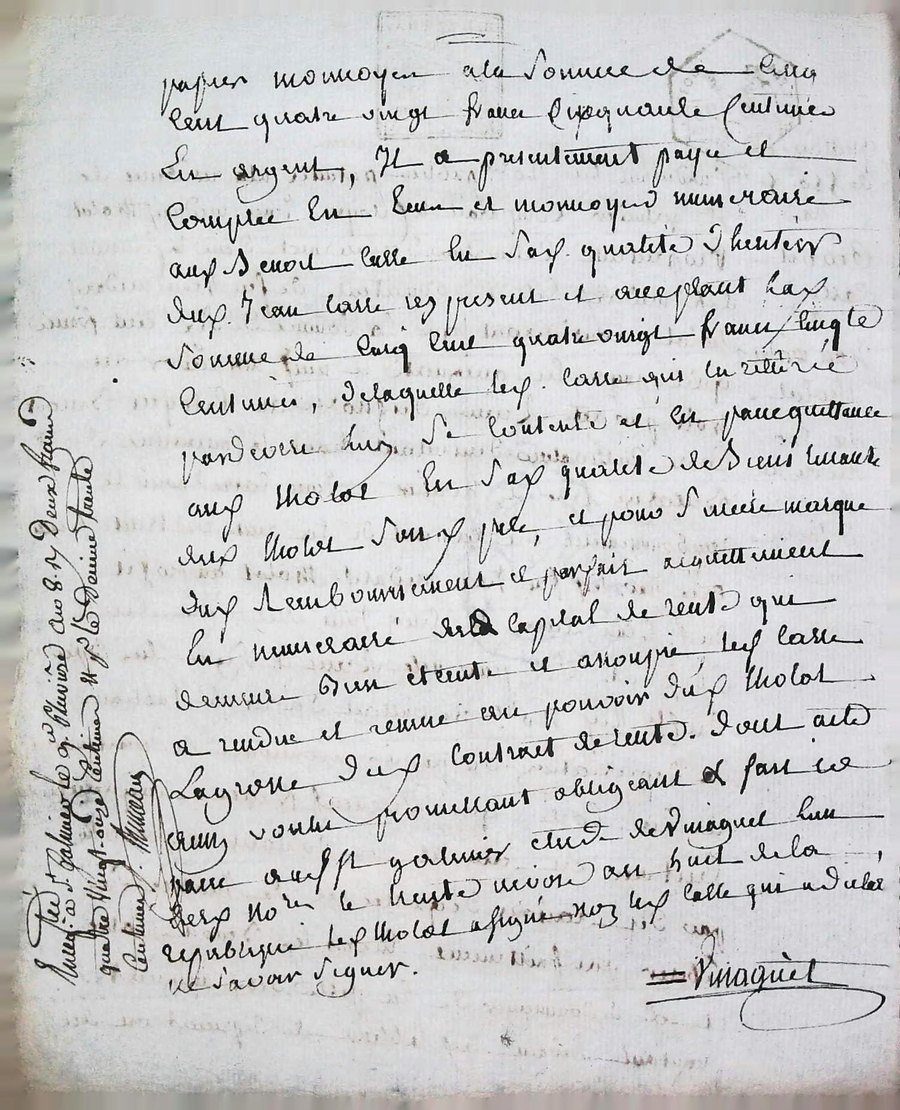 papier monnoyer a la somme de cinq
cent quatre vingt francs cinquante centimes
en argent, Il a presentement payé et
comptée en ecus et monnoyes numeraire
aux Benoit Casse en sad. qualité d'heritier
dud. Jean Casse icy present et acceptant lad.
somme de cinq cent quatre vingt francs cinqte
centimes, de laquelle led. Casse qui l'a retirée
pardevers luy se contente et en passe quittance
aud Molat en sad qualité de biens tenant
dud Molat son d. pere, et pour sincère marque
dud remboursement et parfait acquittement
en numeraire dud capital de rente qui
demeure bien eteinte et assoupie, led Casse
a rendue et remise au pouvoir dud Molat
la grosse dud contrat de rente. dont acte
ainsy voulu promettant obligeant &c fait icé
passé a St galmier etude de Vinaquet l'un
des nores le trente nivose an huit de la
republique led Molat a signé non led Casse qui a declaré
ne savoir signer.
Vinaquet
a St Galmier le pluviose an 8. deux francs
quatre vingt onze centimes le dernier trente
centimes.